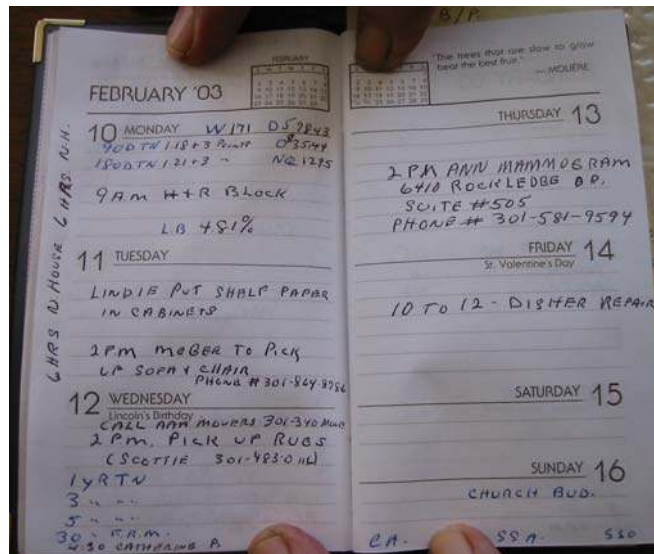 B/P.
FEBRUARY '03
FEBRUARY
10 MONDAY W 171 D 5 9843
90D TN 1.18 + 3 Points
180D TN 1.21 + 3 " NQ 1295
9AM H+R BLOCK
LB 4.81%
11 TUESDAY
LINDIE PUT SHELF PAPER
IN CABINETS
2PM MOBER TO PICK
UP SOFA + CHAIR
PHONE # 301-864-8786
12 WEDNESDAY
Lincoln's Birthday
CALL AAA MOVERS 301-340
2 PM. PICK UP RUGS
(SCOTTIE 301-483-0116)
1 YR TN
3 " "
5 " "
30 " F.R.M.
4:30 CATHERINE P.
6 HRS N HOUSE 6 HRS. N.H.
"The trees that are slow to grow
bear the best fruit."
— MOLIERE
THURSDAY 13
2 PM ANN MAMMOGRAM
6410 ROCKLEDGE DR.
SUITE #505
PHONE # 301-581-9594
FRIDAY 14
St. Valentine's Day
10 TO 12 - DISHER REPAIR
SATURDAY 15
SUNDAY 16
CHURCH BUD.
CA. SSA. SSO